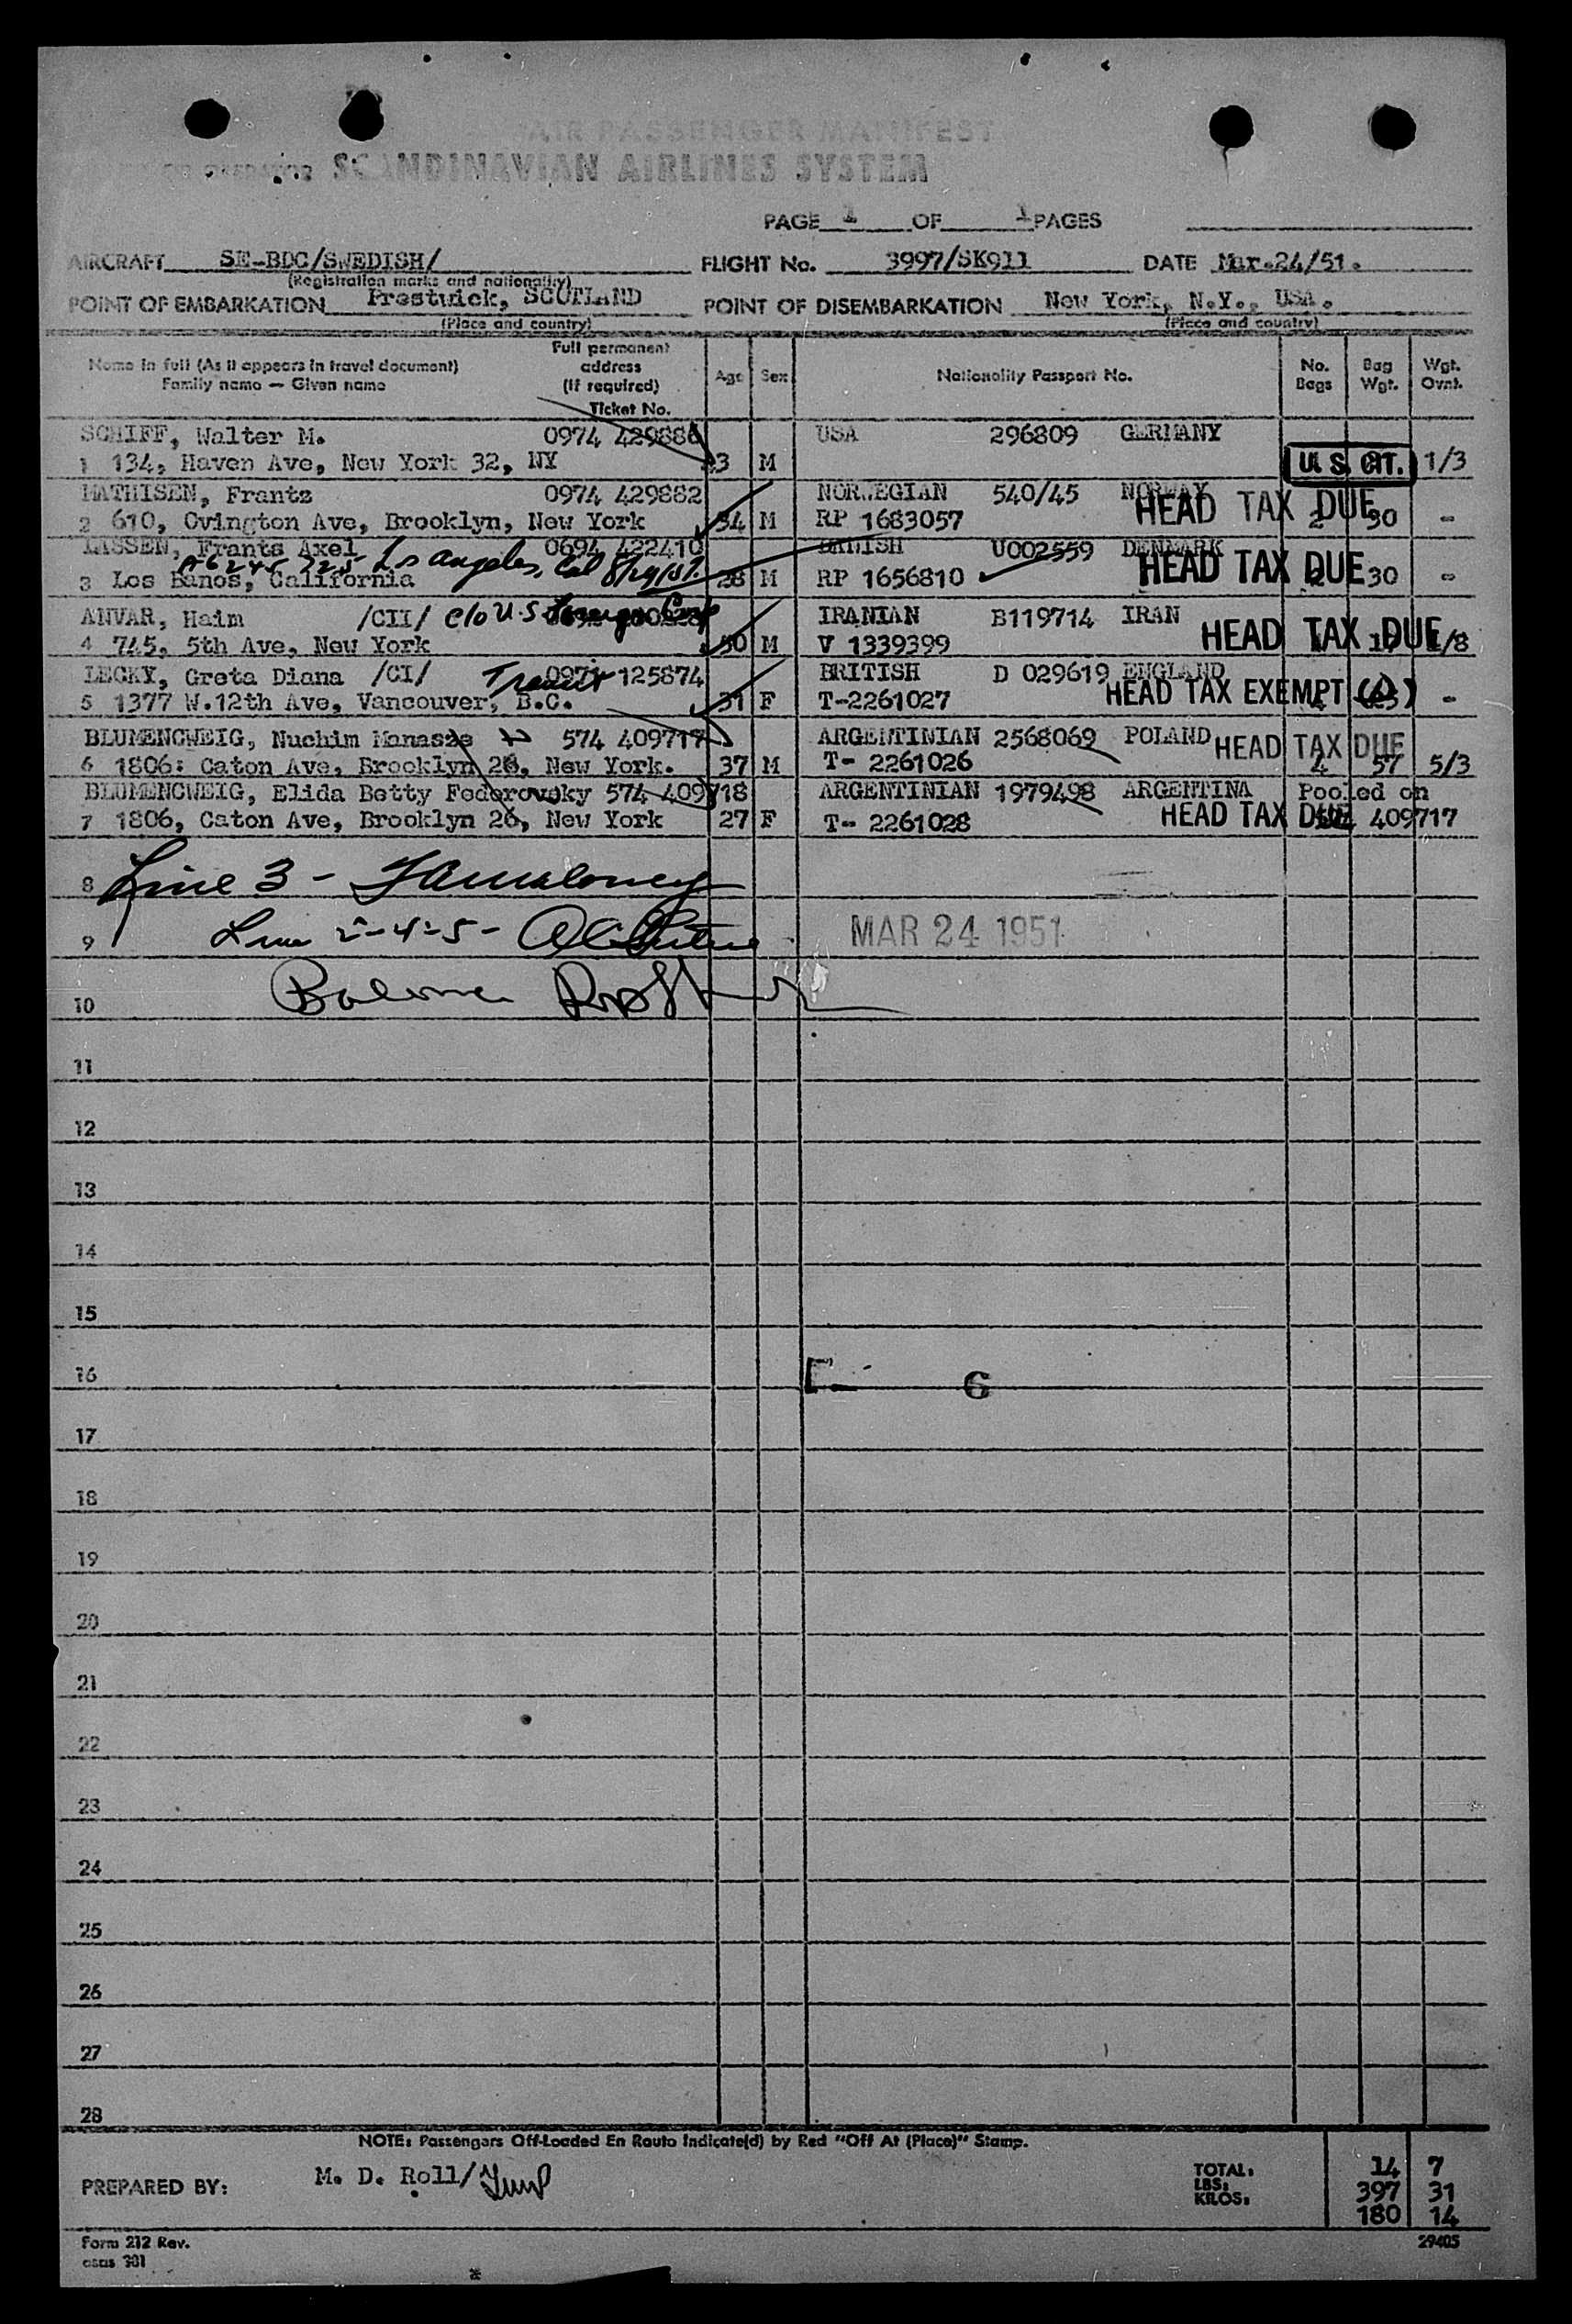 AIR PASSENGER MANIFEST
SCANDINAVIAN AIRLINES SYSTEM
PAGE 1 OF 1 PAGES
AIRCRAFT SE-BDC/SWEDISH/ FLIGHT No. 3997/SK911 DATE Mar.24/51.
(Registration marks and nationality)
POINT OF EMBARKATION Prestwick, SCOTLAND POINT OF DISEMBARKATION New York, N.Y., USA.
(Place and country) (Place and country)
Name in full (As it appears in travel document) Family name — Given name Full permanent address (If required) Ticket No. Age Sex Nationality Passport No. No. Bags Bag Wgt. Wgt. Ovrt.
SCHIFF, Walter M. 0974 429886 USA 296809 GERMANY
1 134, Haven Ave, New York 32, NY 3 M U. S. CIT. 1/3
MATHISEN, Frantz 0974 429882 NORWEGIAN 540/45 NORWAY HEAD TAX DUE
2 610, Ovington Ave, Brooklyn, New York 34 M RP 1683057 2 30 -
LASSEN, Frants Axel 0694 422410 DANISH U002559 DENMARK
Los Angeles, Cal 8/29/51. HEAD TAX DUE
3 Los Banos, California 28 M RP 1656810 2 30 -
ANVAR, Haim /CII/ c/o U.S. IRANIAN B119714 IRAN
4 745, 5th Ave, New York 50 M V 1339399 HEAD TAX DUE 1/8
LECKY, Greta Diana /CI/ Transit 0974 125874 BRITISH D 029619 ENGLAND
5 1377 W.12th Ave, Vancouver, B.C. 31 F T-2261027 HEAD TAX EXEMPT -
BLUMENCWEIG, Nuchim Manasze 574 409717 ARGENTINIAN 2568069 POLAND HEAD TAX DUE
6 1806: Caton Ave, Brooklyn 26, New York. 37 M T- 2261026 4 57 5/3
BLUMENCWEIG, Elida Betty Federovsky 574 409718 ARGENTINIAN 1979498 ARGENTINA Pooled on
7 1806, Caton Ave, Brooklyn 26, New York 27 F T- 2261028 HEAD TAX DUE 574 409717
8 Line 3 -
9 Line 2-4-5- MAR 24 1951
10
11
12
13
14
15
16 6
17
18
19
20
21
22
23
24
25
26
27
28
NOTE: Passengers Off-Loaded En Route Indicate(d) by Red "Off At (Place)" Stamp.
PREPARED BY: M. D. Roll/
TOTAL: 14 7
LBS: 397 31
KILOS: 180 14
Form 212 Rev. 29405